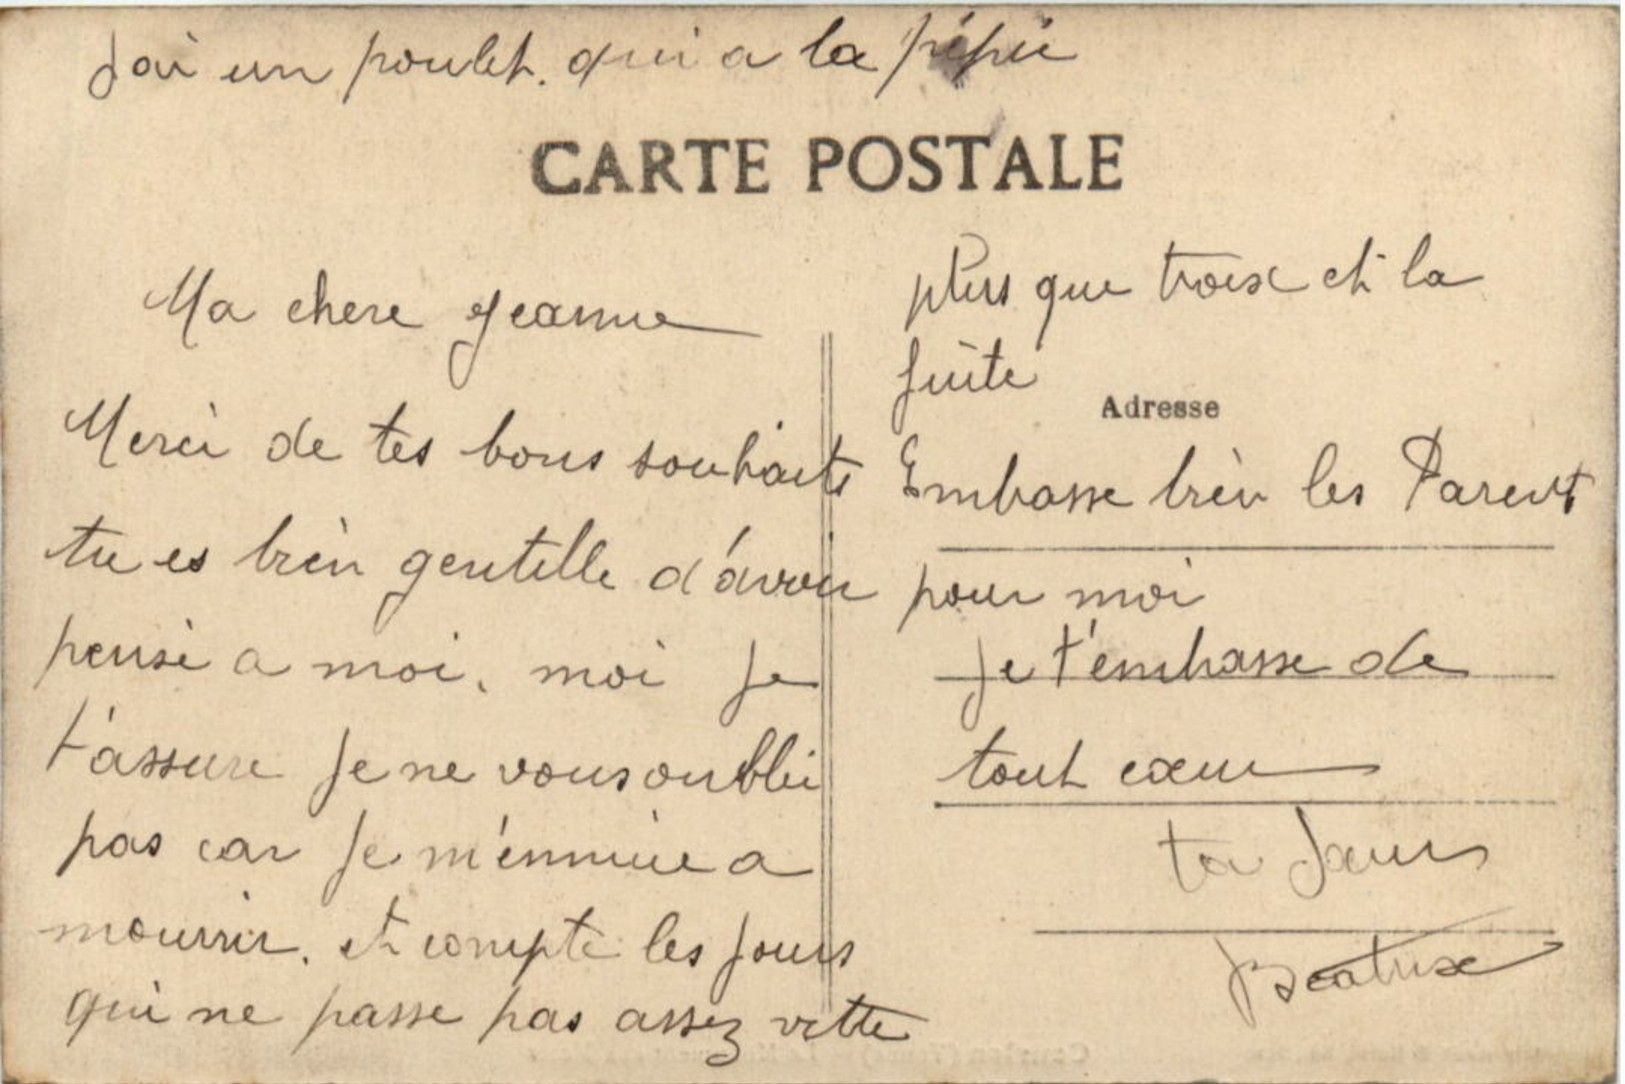 J'ai un poulet. qui a la pépie
CARTE POSTALE
Ma chere Jeanne
Merci de tes bons souhaits
tu es bien gentille d'avoir
pensé a moi. moi je
t'assure je ne vous oublie
pas car je m'ennuie a
mourrir. et compte les jours
qui ne passe pas assez vitte
plus que troix et la
fuite
Adresse
Embasse bien les Parent
pour moi
je t'embasse de
tout cœur
ta sœur
Beatrixe